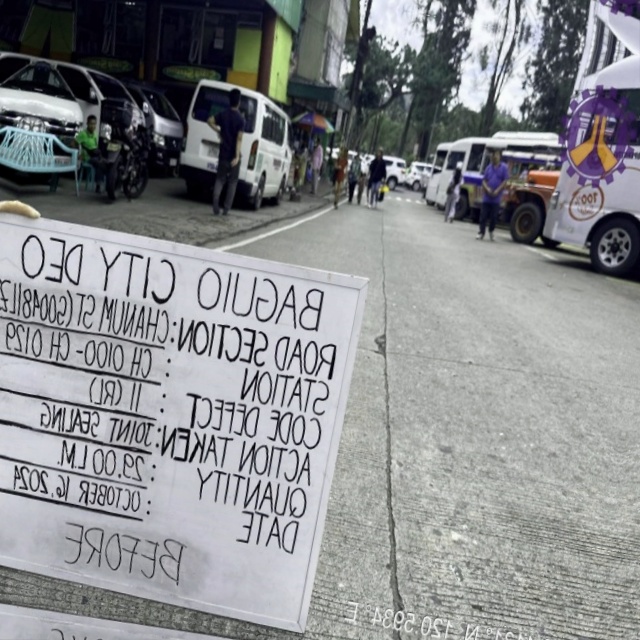 BAGUIO CITY DEO
ROAD SECTION: CHANUM ST (G00481LZ
STATION : CH 0100 - CH 0129
CODE DEFECT : 11 (RL)
ACTION TAKEN: JOINT SEALING
QUANTITY : 29.00 LM.
DATE : OCTOBER 16, 2024
BEFORE